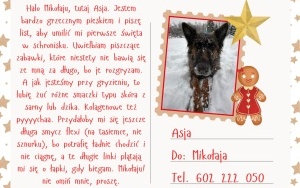 Halo Mikołaju, tutaj Asja. Jestem
bardzo grzecznym pieskiem i piszę
list, aby umilić mi pierwsze Święta
w schronisku. Uwielbiam piszczące
zabawki, które niestety nie bawią się
ze mną za długo, bo je rozgryzam.
A jak jesteśmy przy gryzieniu, to
lubię żuć różne smaczki typu skóra z
sarny lub dzika. Kolagenowe też
pyyyyycha. Przydałaby mi się jeszcze
długa smycz flexi (na tasiemce, nie
sznurku), bo potrafię ładnie chodzić i
nie ciągnę, a te długie linki plątają
mi się o łapki, gdy biegam. Mikołaju!
nie omiń mnie, proszę.
Asja
Do: Mikołaja
Tel. 602 222 050